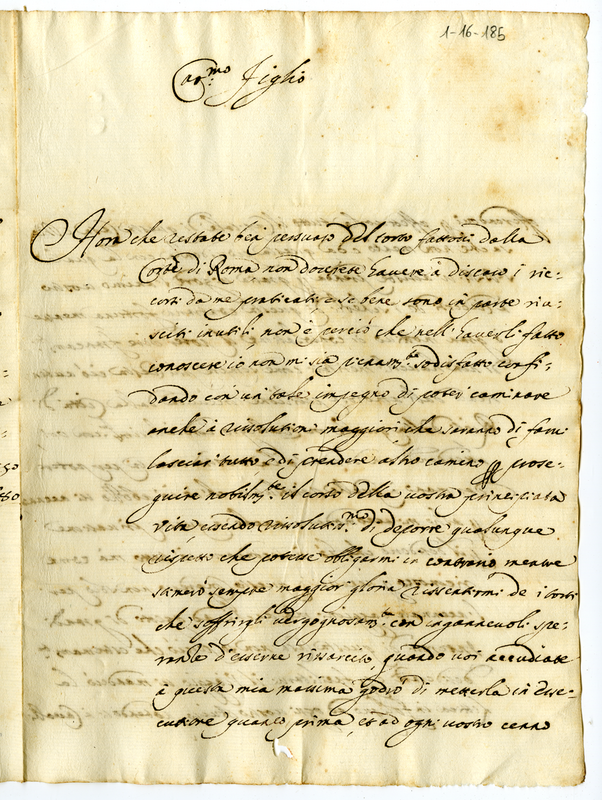 1-16-185
Car.mo Figlio
Hora che restate ben persuaso del torto fattovi dalla
Corte di Roma non dovrete havere à discaro i ric=
cordi da me praticati, e se bene sono in parte riu=
sciti inutili non è perciò che nell'haverli fatto
conoscere io non mi sia pienam.te sodisfatto confi=
dando con un tale impegno di poter caminare
anche à rissolutioni maggiori, che saranno di farvi
lasciar tutto e di prendere altro camino prose=
guire nobilm.te il corso della vostra principiata
vita essendo rissolutiss.mo di deporre qualunque
rispetto che potesse obligarmi in contrario mentre
stimerò sempre maggior gloria rissentirmi de i torti
che soffrirgli vergognosam.te con ingannevoli spe=
ranze d'esserne rissarcito, quando voi accudiate
à questa mia massima godrò di metterla in esse=
cutione quanto prima, et ad ogni vostro cenno
50
80